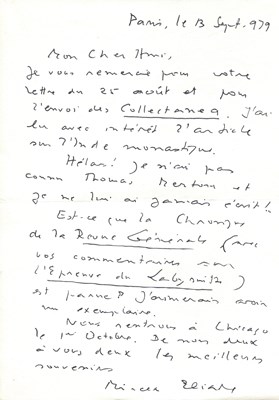 Paris, le 13 Sept. 979
Mon Cher Ami,
Je vous remercie pour votre
lettre du 25 août et pour
l'envoi des Collectanea. J'ai
lu avec intérêt l'article
sur l'Inde monastique.
Hélas! je n'ai pas
connu Thomas Merton et
je ne lui ai jamais écrit!
Est-ce que la Chronique
de la Revue Générale (avec
vos commentaires sur
l'Epreuve du Labyrinthe)
est parue? J'aimerais avoir
un exemplaire.
Nous rentrons à Chicago
le 1er Octobre. De nous deux
à vous deux les meilleurs
souvenirs
Mircea Eliade